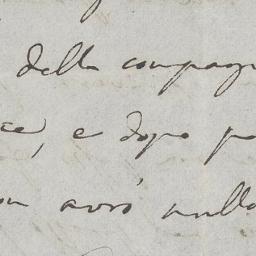 della compagn
ce, e dopo po
on avrò nulla